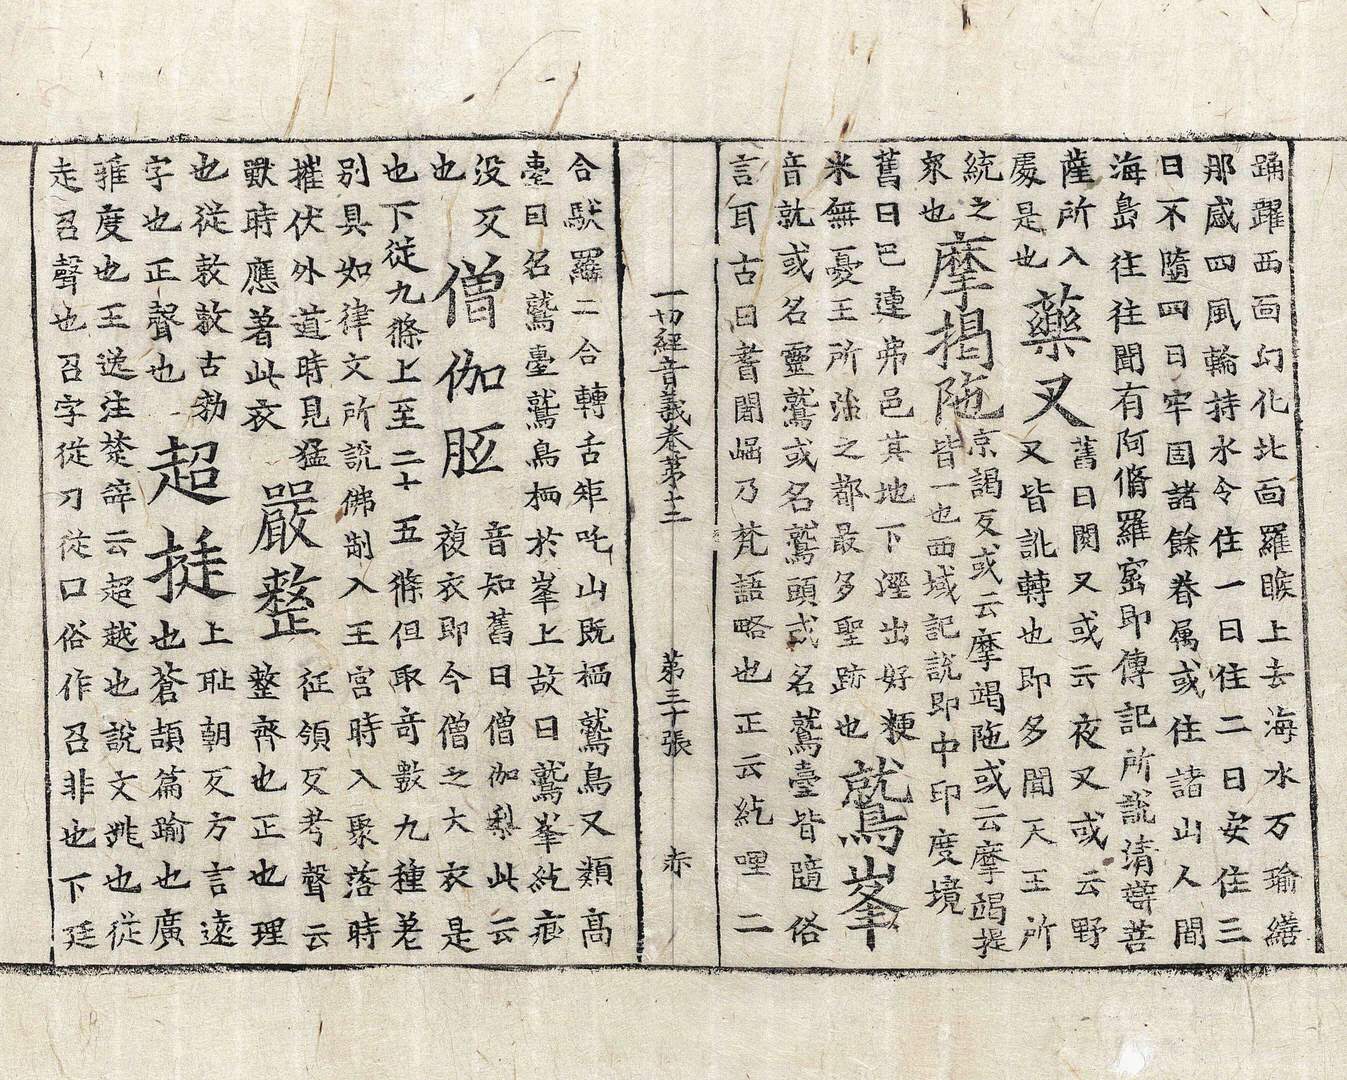 踊躍西面幻化北面羅睺上去海水万瑜繕
那咸四風輪持水令住一日住二日安住三
日不墮四日牢固諸餘眷属或住諸山人間
海島往往聞有阿脩羅窟即傳記所說清辯菩
薩所入
處是也
藥叉
舊曰閱叉或云夜叉或云野
叉皆訛轉也即多聞天王所
統之
衆也
摩揭陁
京謁反或云摩竭陁或云摩竭提
皆一也西域記說即中印度境
舊曰巴連弗邑其地下溼出好粳
米無憂王所治之都最多聖跡也
鷲峯
音就或名靈鷲或名鷲頭或名鷲臺皆隨俗
言耳古曰耆闍崛乃梵語略也正云紇哩二
一切經音義卷第十二 第三十張 赤
合馱羅二合轉舌矩吒山既栖鷲鳥又類高
臺曰名鷲臺鷲鳥栖於峯上故曰鷲峯紇痕
没反
也
僧伽胝
音知舊曰僧伽梨此云
複衣即今僧之大衣是
也下從九條上至二十五條但取奇數九種差
別具如律文所說佛制入王宮時入聚落時
摧伏外道時見猛
獸時應著此衣
嚴整
征領反考聲云
整齊也正也理
也從敕敕古勑
字也正聲也
超挺
上耻朝反方言遠
也蒼頡篇踰也廣
雅度也王逸注楚辭云超越也說文跳也從
走召聲也召字從刀從口俗作召非也下廷